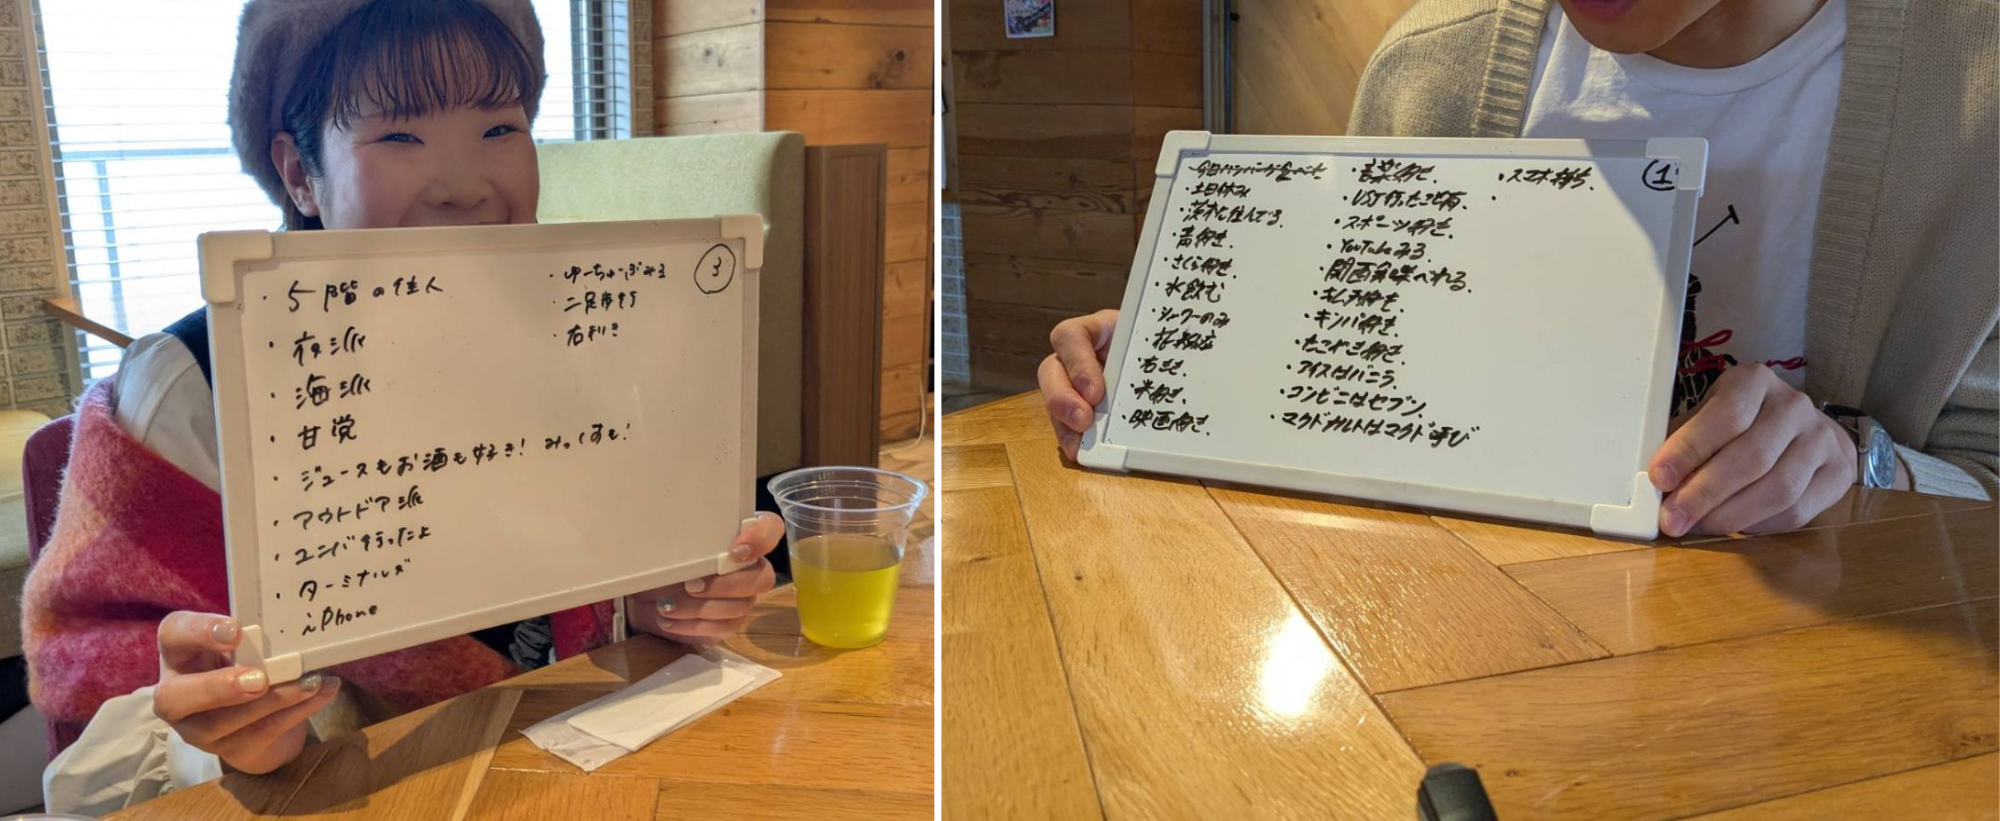 ・5階の住人
・夜派
・海派
・甘党
・ジュースもお酒も好き! みっくすも!
・アウトドア派
・ユンバ行ったよ
・ターミナルズ
・iPhone
・ゆーちゅーぶみる
・二足歩行
・右利き
3
・今日ハンバーガー食べた
・土日休み
・茨木に住んでる.
・青好き.
・さくら好き.
・水飲む
・シャワーのみ
・右きき.
・米好き.
・映画好き.
・音楽好き.
・USJ行ったことある.
・スポーツ好き.
・YouTubeみる
・関西弁喋べれる.
・キムチ好き.
・キンパ好き.
・たこやき好き.
・アイスはバニラ.
・コンビニはセブン.
・マクドナルドはマクド呼び
・スマホ持ち.
・
1